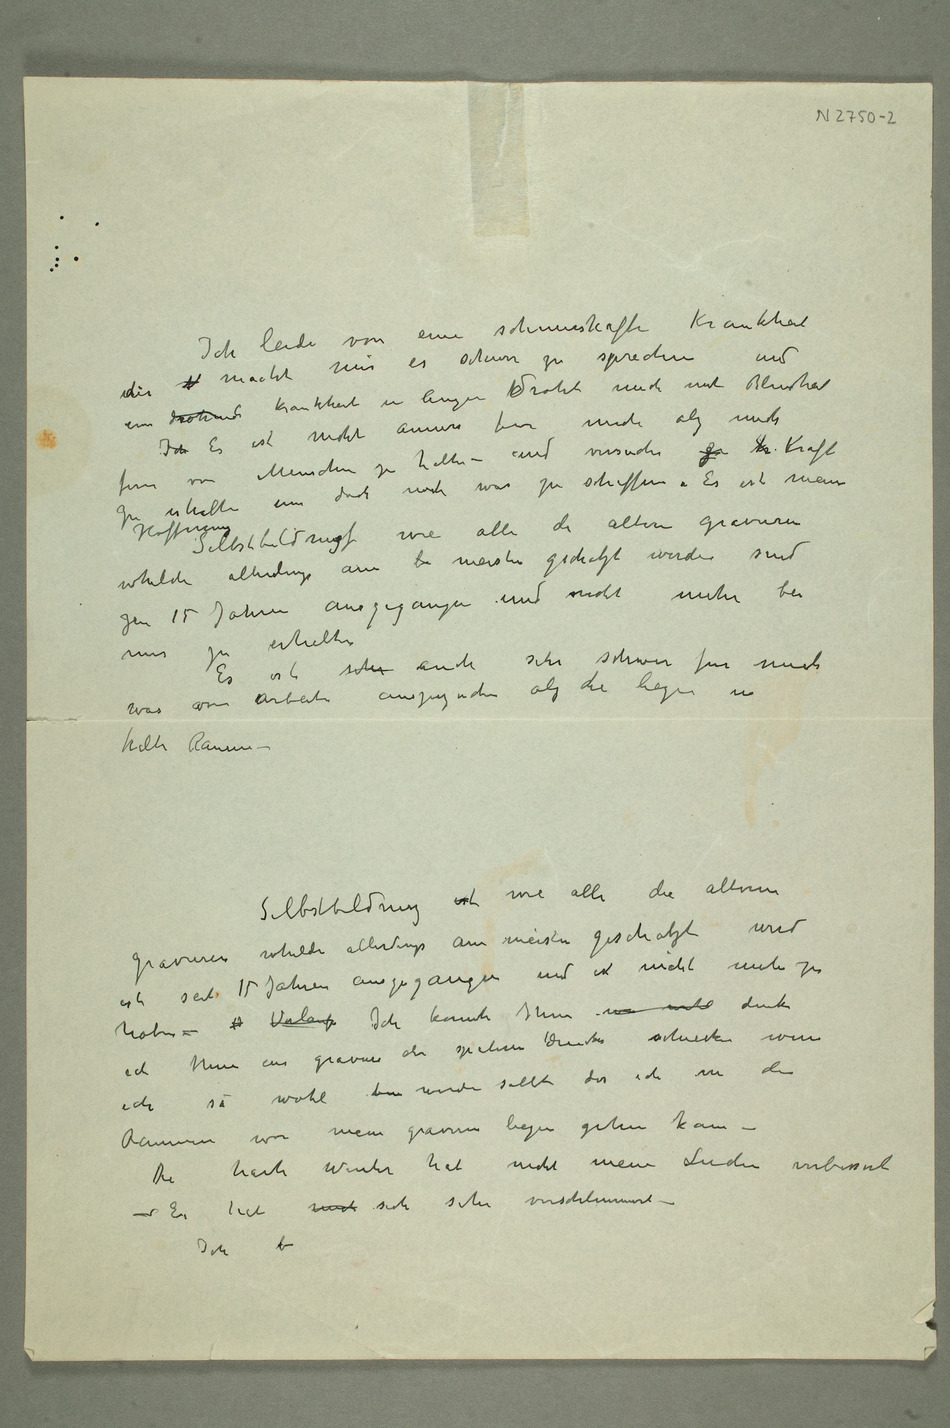 N 2750-2
Ich leide von eine schmershafte Krankheit
die macht mir es schwer zu sprechen und
eine drohende Krankheit in Augen droht mich mit Blindhat
Ich Es ist nicht anners für mich alz mich
fern von Menschen zu halten – und versuche zu Kr. Kraft
zu erhalten um doch noch was zu schaffen. Es ist mein
Hoffnung
Selbstbildnis wie alle die altere gravuren
whilche allerdings am be meisten geschatzt werden sind
zen 15 Jahren ausgegangen und nicht mehr bei
mir zu erhelten
Es ist sehr auch sehr schwer für mich
was von Arbeite auszusuchen alz die liegen in
kalte Raumen –
Selbstbildnis ist wie alle die alteren
gravuren whilche allerdings am meisten geschatzt wird
ist seit 15 Jahren ausgegangen und ist nicht mehr zu
haben – Verlang Ich konnte Ihnen denke
ich Ihnen ein gravure der spateren Drucke schicken wenn
ich so wohl bin werden sollte das ich in die
Raumen wor meine gravuren liegen gehen kann –
Die harte Winter hat nicht meine Leiden verbessert
– Er hat mich sich sehr verschlimmert –
Ich b